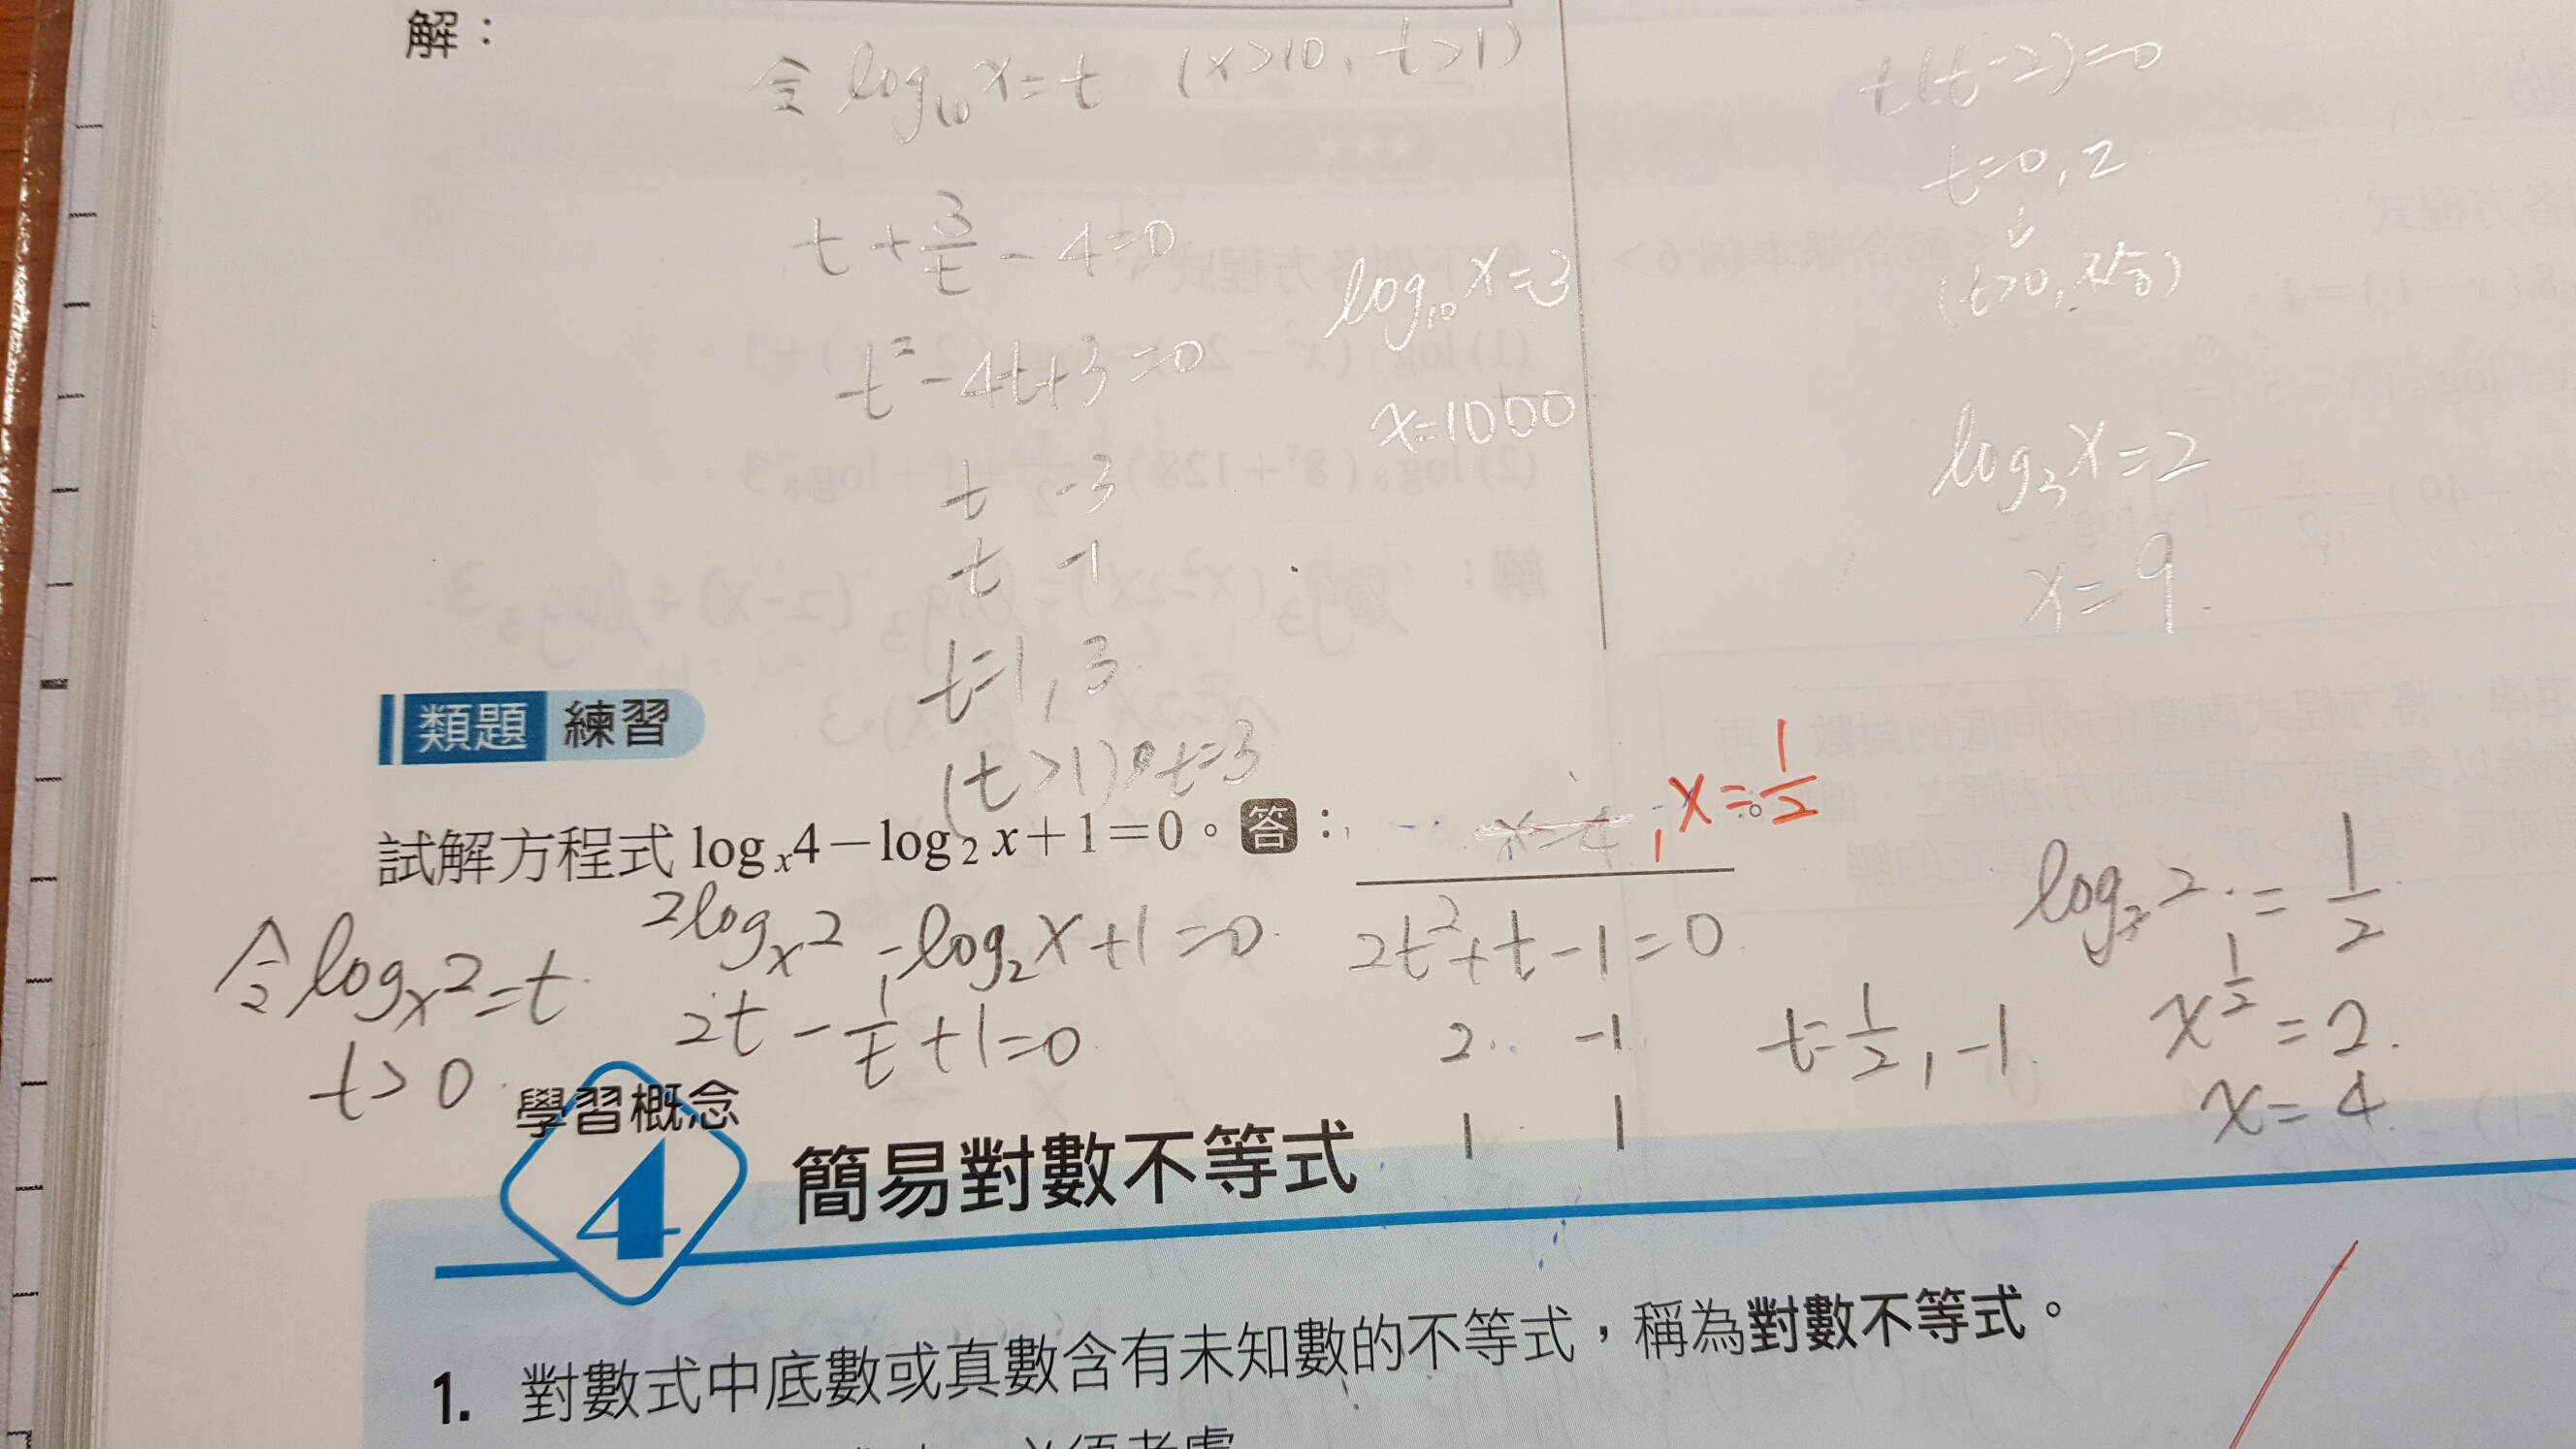 解：
令 log₁₀x=t (x>10, t>1)
t+3/t-4=0
t²-4t+3=0
t -3
t -1
t=1, 3
(t>1) t=3
log₁₀x=3
x=1000
t(t-2)=0
t=0, 2
↓
(t>0,
log₃x=2
x=9
類題 練習
試解方程式 logₓ4－log₂x＋1＝0。答： x=4, x=1/2。
令 logₓ2=t
t>0
2logₓ2-log₂x+1=0
2t-1/t+1=0
2t²+t-1=0
2 -1
1 1
t=1/2, -1
logₓ2=1/2
x^(1/2)=2
x=4
學習概念
4 簡易對數不等式
1. 對數式中底數或真數含有未知數的不等式，稱為對數不等式。